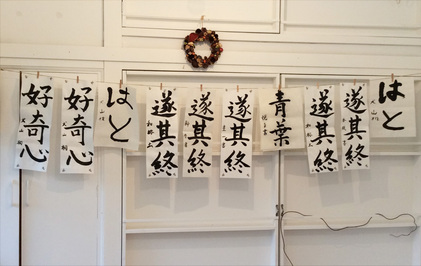 好奇心
好奇心
はと
遂其終
遂其終
遂其終
青葉
遂其終
遂其終
はと